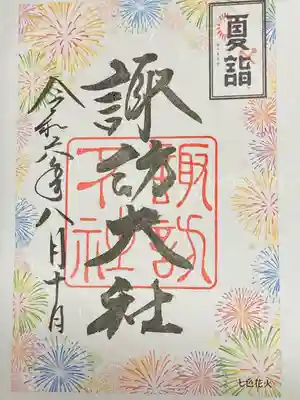 夏詣
諏訪大社
諏訪
大社
令和六年八月十日
七色花火